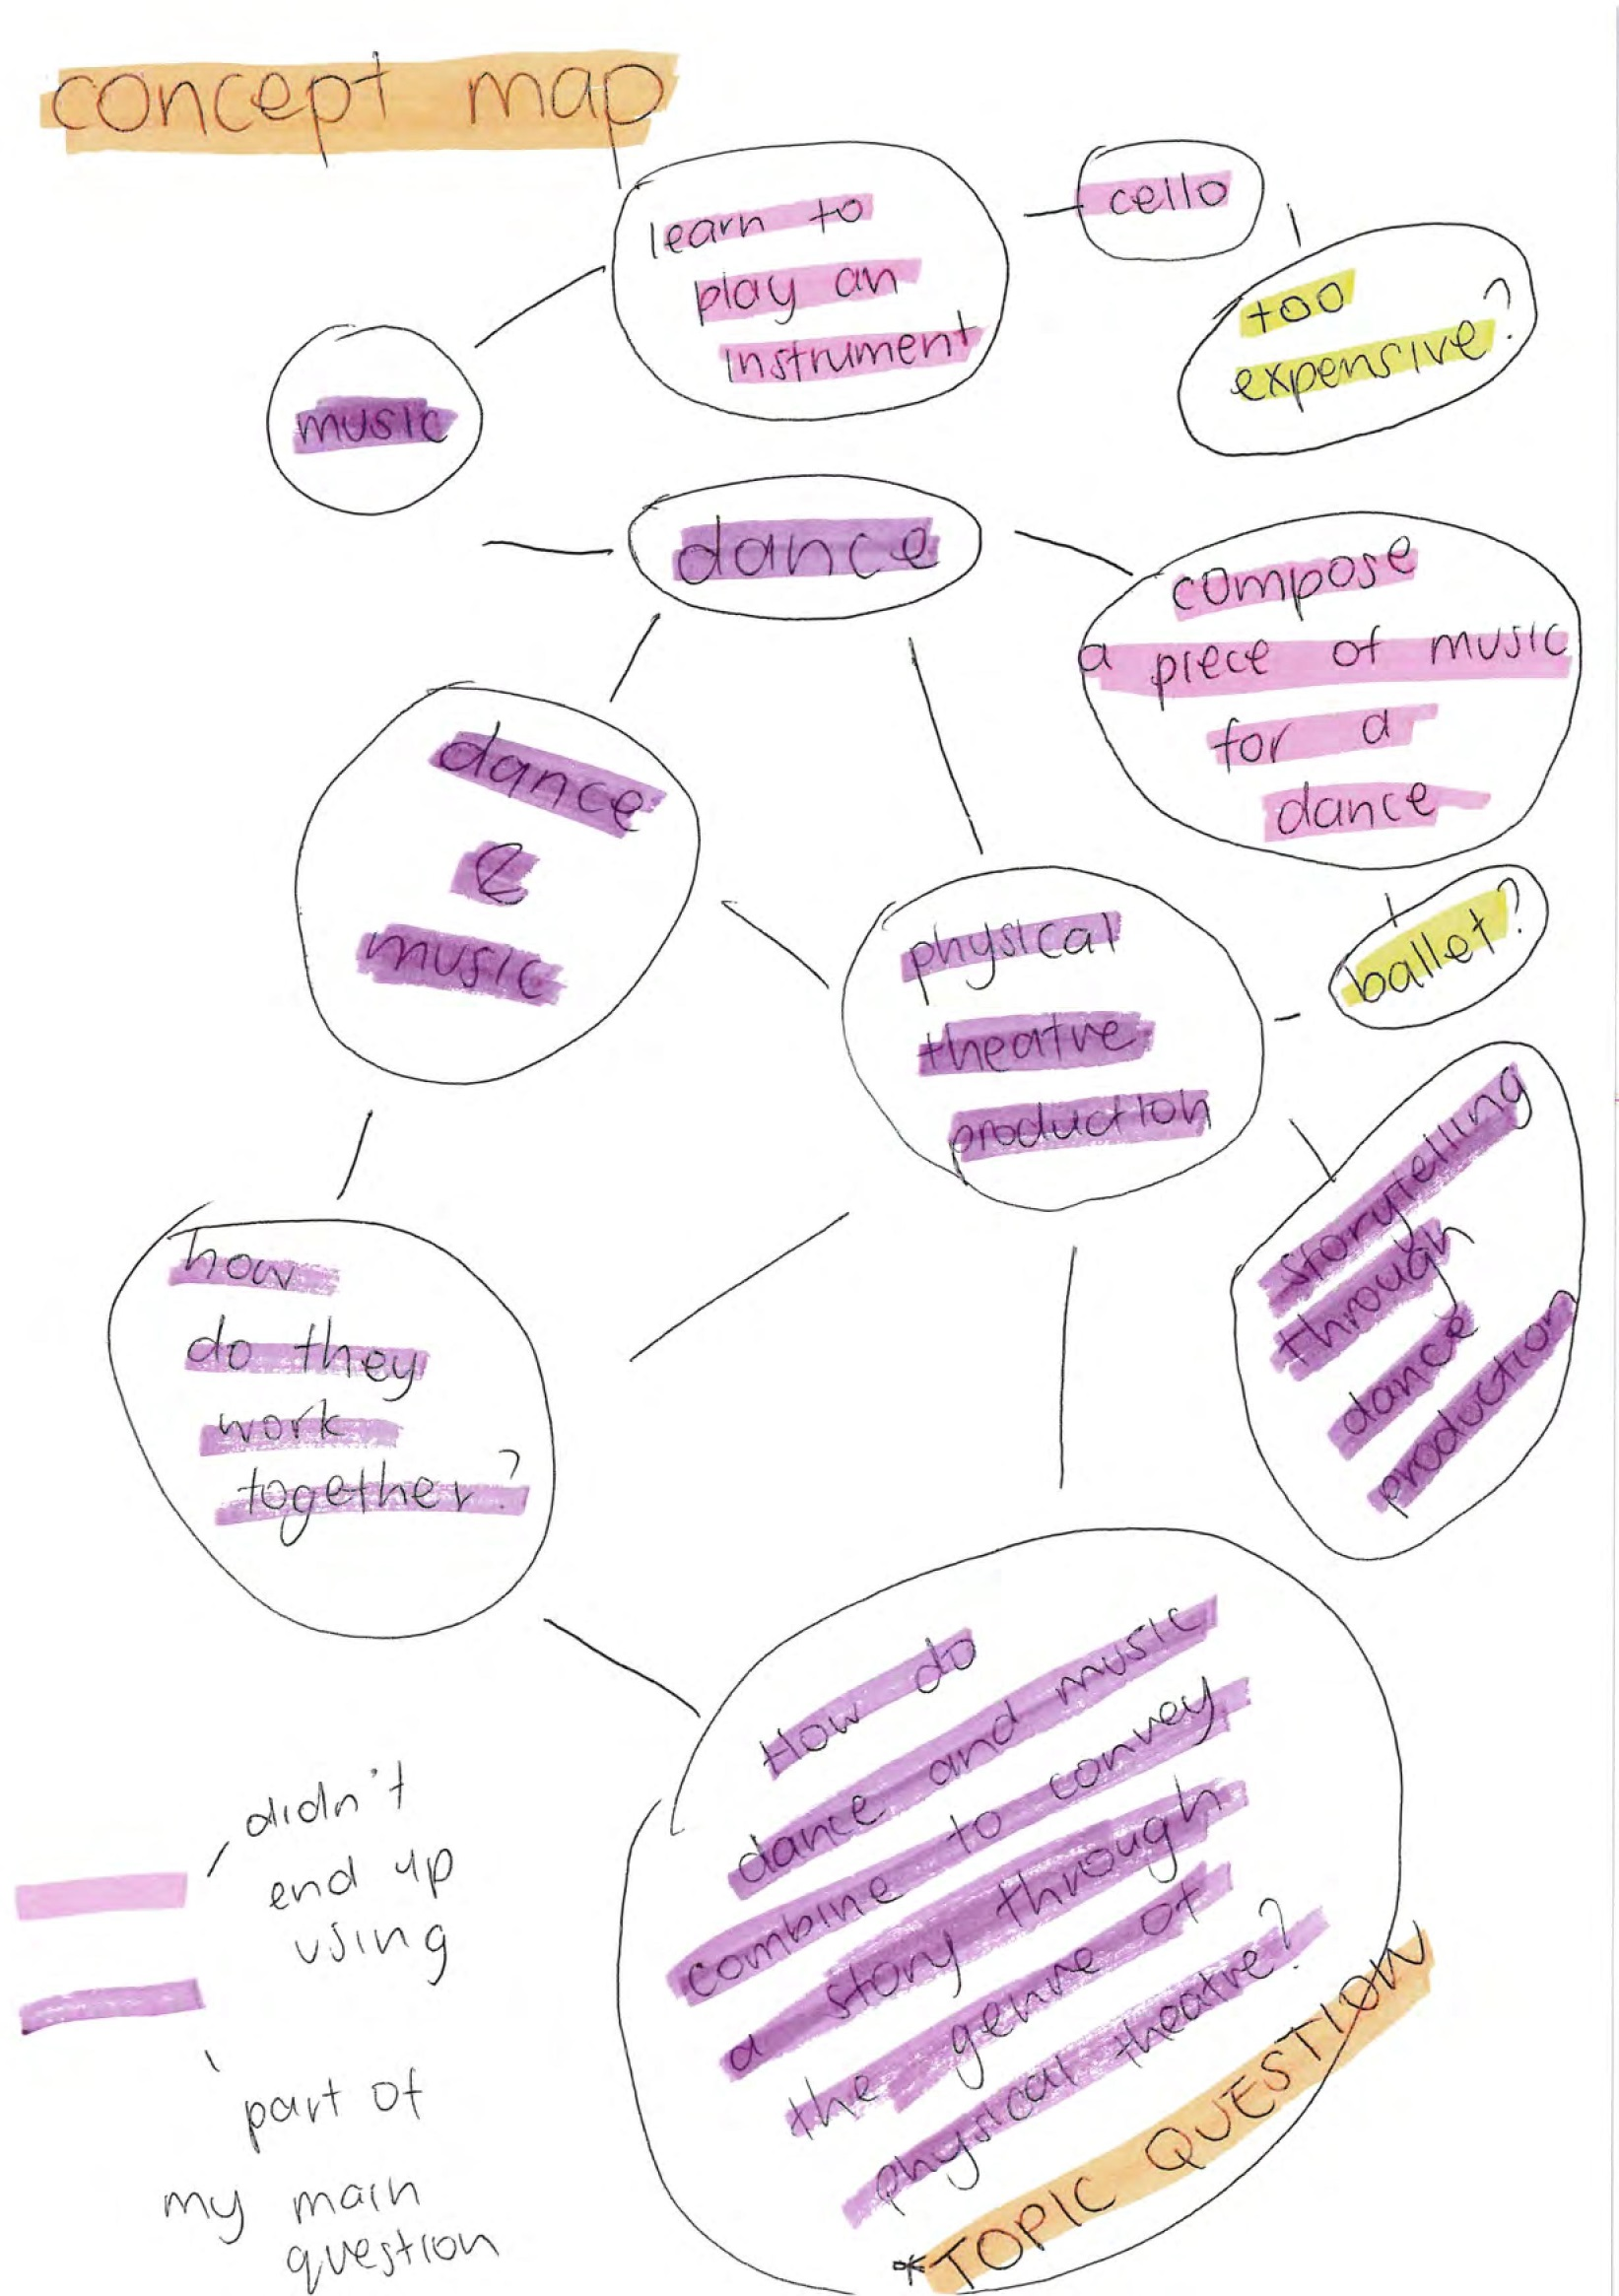 concept map
learn to
play an
instrument
cello
too
expensive?
music
dance
compose
a piece of music
for a
dance
dance
&
music
physical
theatre
production
ballet?
storytelling
through
dance
production
how
do they
work
together?
How do
dance and music
combine to convey
a story through
the genre of
physical theatre?
*TOPIC QUESTION
didn't
end up
using
part of
my main
question